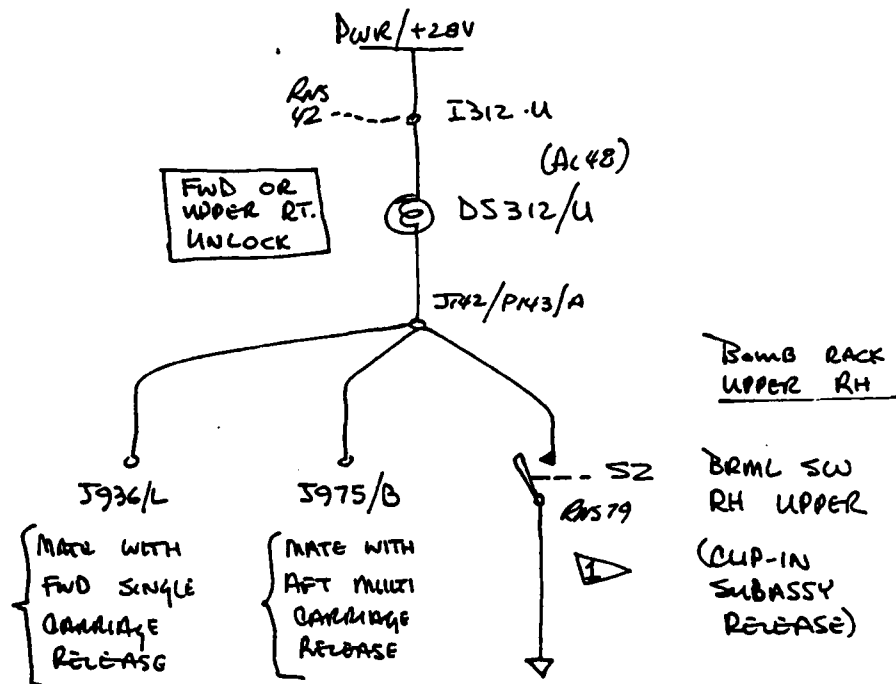 PWR/+28V
RNS
42
I312-U
(AC48)
FWD OR
UPPER RT.
UNLOCK
DS312/U
J142/P143/A
BOMB RACK
UPPER RH
J936/L
J975/B
S2
RNS79
BRML SW
RH UPPER
1
(CLIP-IN
SUBASSY
RELEASE)
MATE WITH
FWD SINGLE
CARRIAGE
RELEASE
MATE WITH
AFT MULTI
CARRIAGE
RELEASE